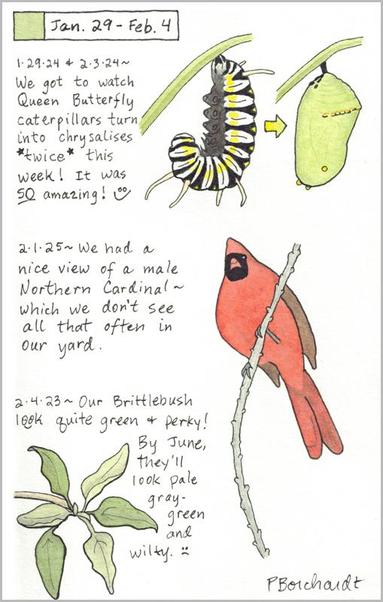 Jan. 29 - Feb. 4
1.29.24 & 2.3.24~
We got to watch
Queen Butterfly
caterpillars turn
into chrysalises
*twice* this
week! It was
SO amazing!
2.1.25~ We had a
nice view of a male
Northern Cardinal~
which we don't see
all that often in
our yard.
2.4.23~ Our Brittlebush
look quite green & perky!
By June,
they'll
look pale
gray-
green
and
wilty.
PBorchardt